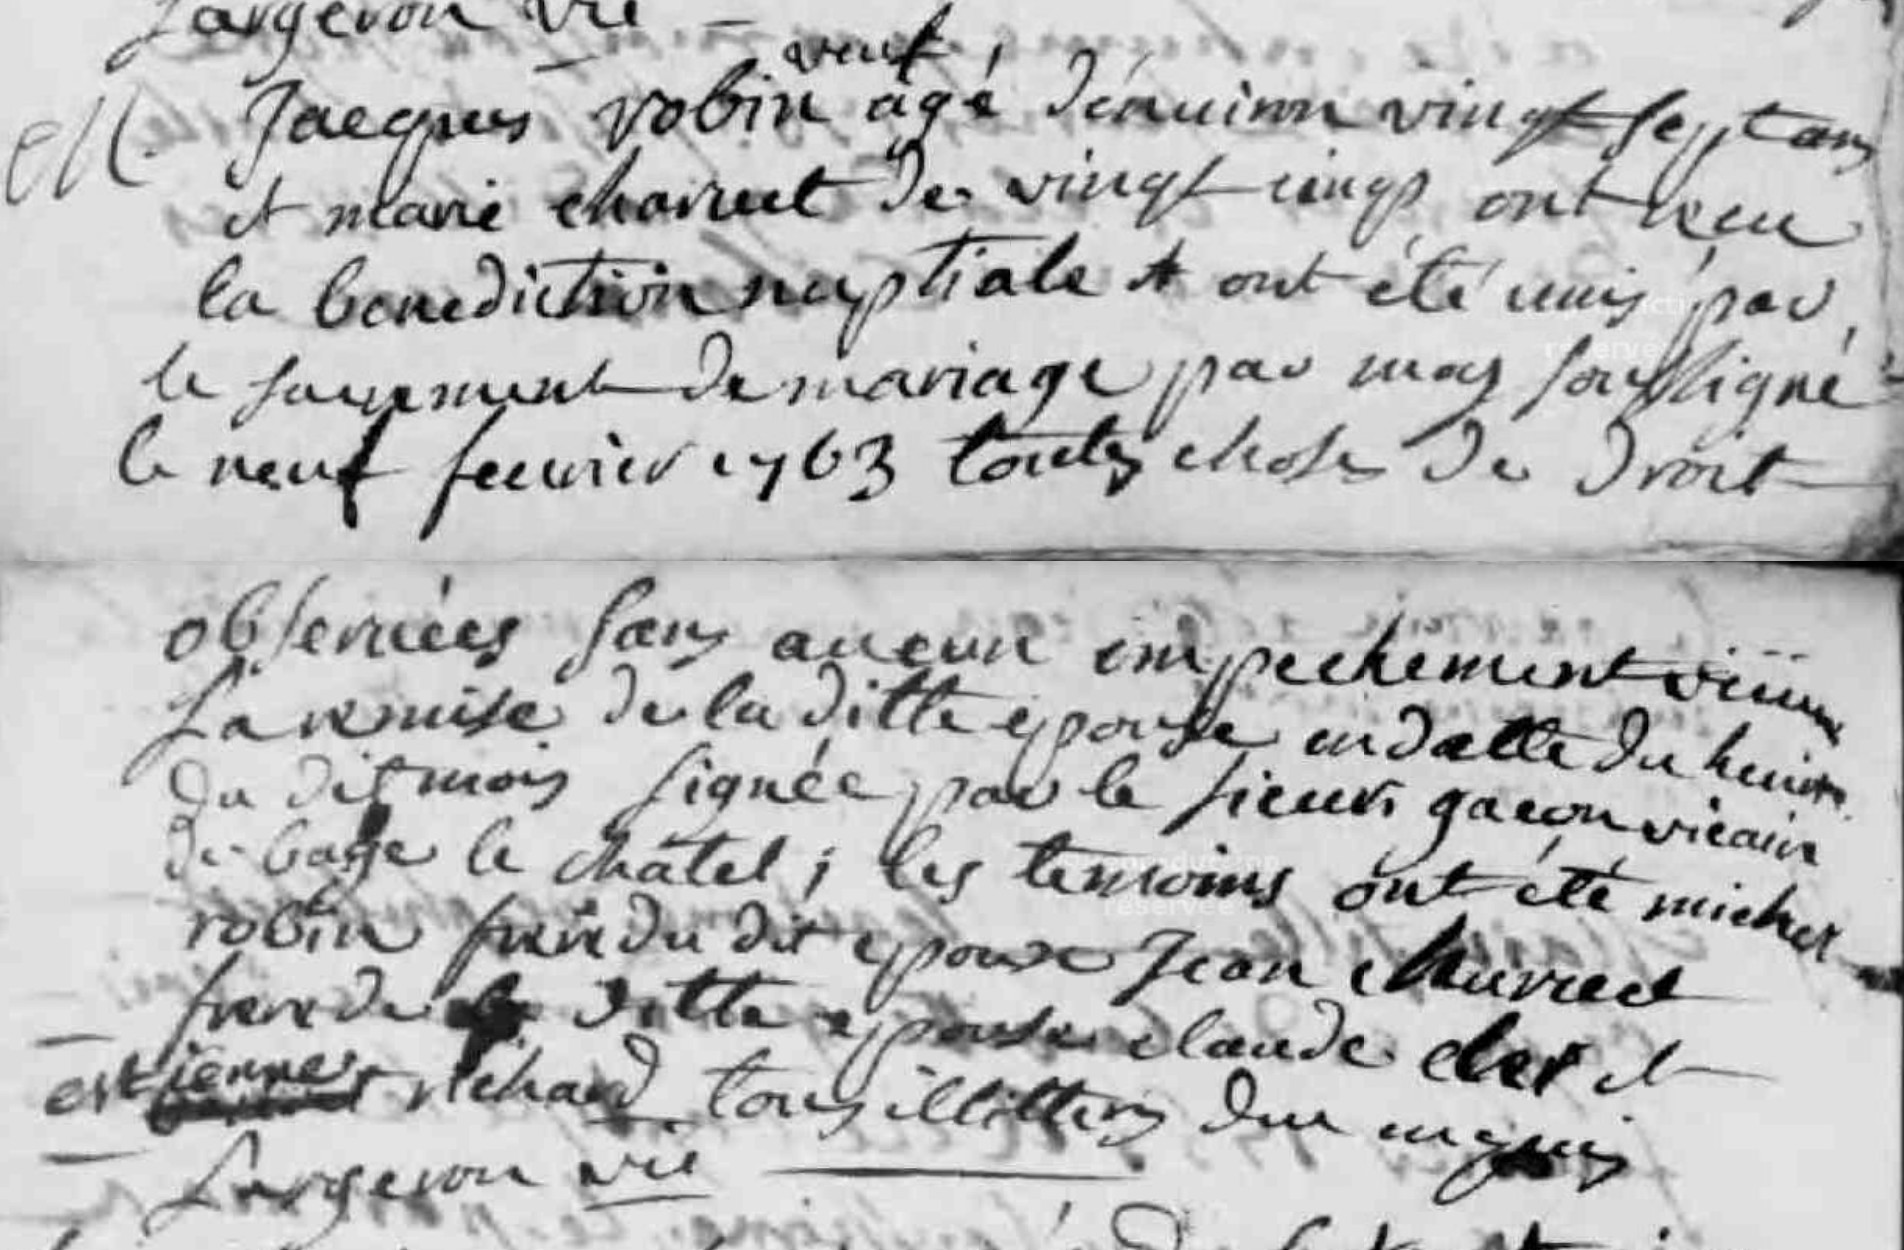 Largeron vic
veuf
M. Jacques robin agé dénuiron vingt sept ans
et marie charuet de vingt cinq ont recu
la benediction nuptiale et ont été unis par
le sacrement de mariage par moy soussigné
le neuf feuvrier 1763 toutes choses de droit
obseruées sans aucun impechement
La remise de la ditte epouse en datte du huit
du dit mois signée par le sieur gacon vicair
de bage le châtel ; les temoins ont été michel
robin frere du dit epoux Jean charuet
frere de la ditte epouse claude cler et
estienne richard tous illitters due enquis
Largeron vic